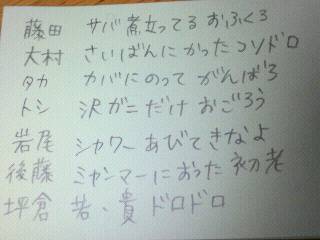 藤田 サバ煮立ってる おふくろ
大村 さいばんにかったコソドロ
タカ カバにのって がんばろ
トシ 沢ガニだけ おごろう
岩尾 シャワーあびてきなよ
後藤 ミャンマーにおった初老
坪倉 若、貴 ドロドロ